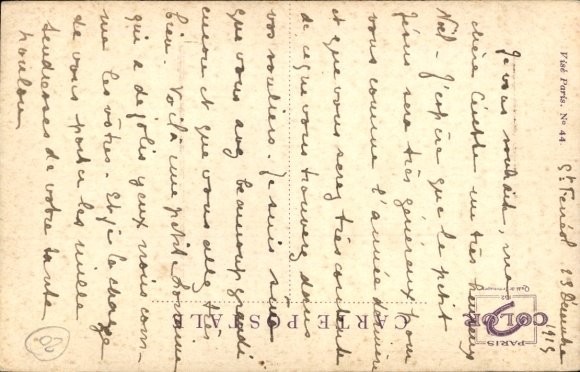 St Ferréol 23 Décembre
1915
Je vous souhaite, ma
chère Cécette un très heureux
Noël - J'espère que le petit
Jésus sera très généreux pour
vous comme l'année dernière
et que vous serez très contente
de ce que vous trouverez dans
vos souliers. Je suis sûre
que vous avez beaucoup grandi
encore et que vous allez très
bien. Voilà une petite bonne
qui a de jolis yeux noirs com-
me les vôtres - Et je la charge
de vous porter les mille
tendresses de votre tante
Loulou
CARTE POSTALE
COLOR
PARIS
Visé Paris. No 44.
20-